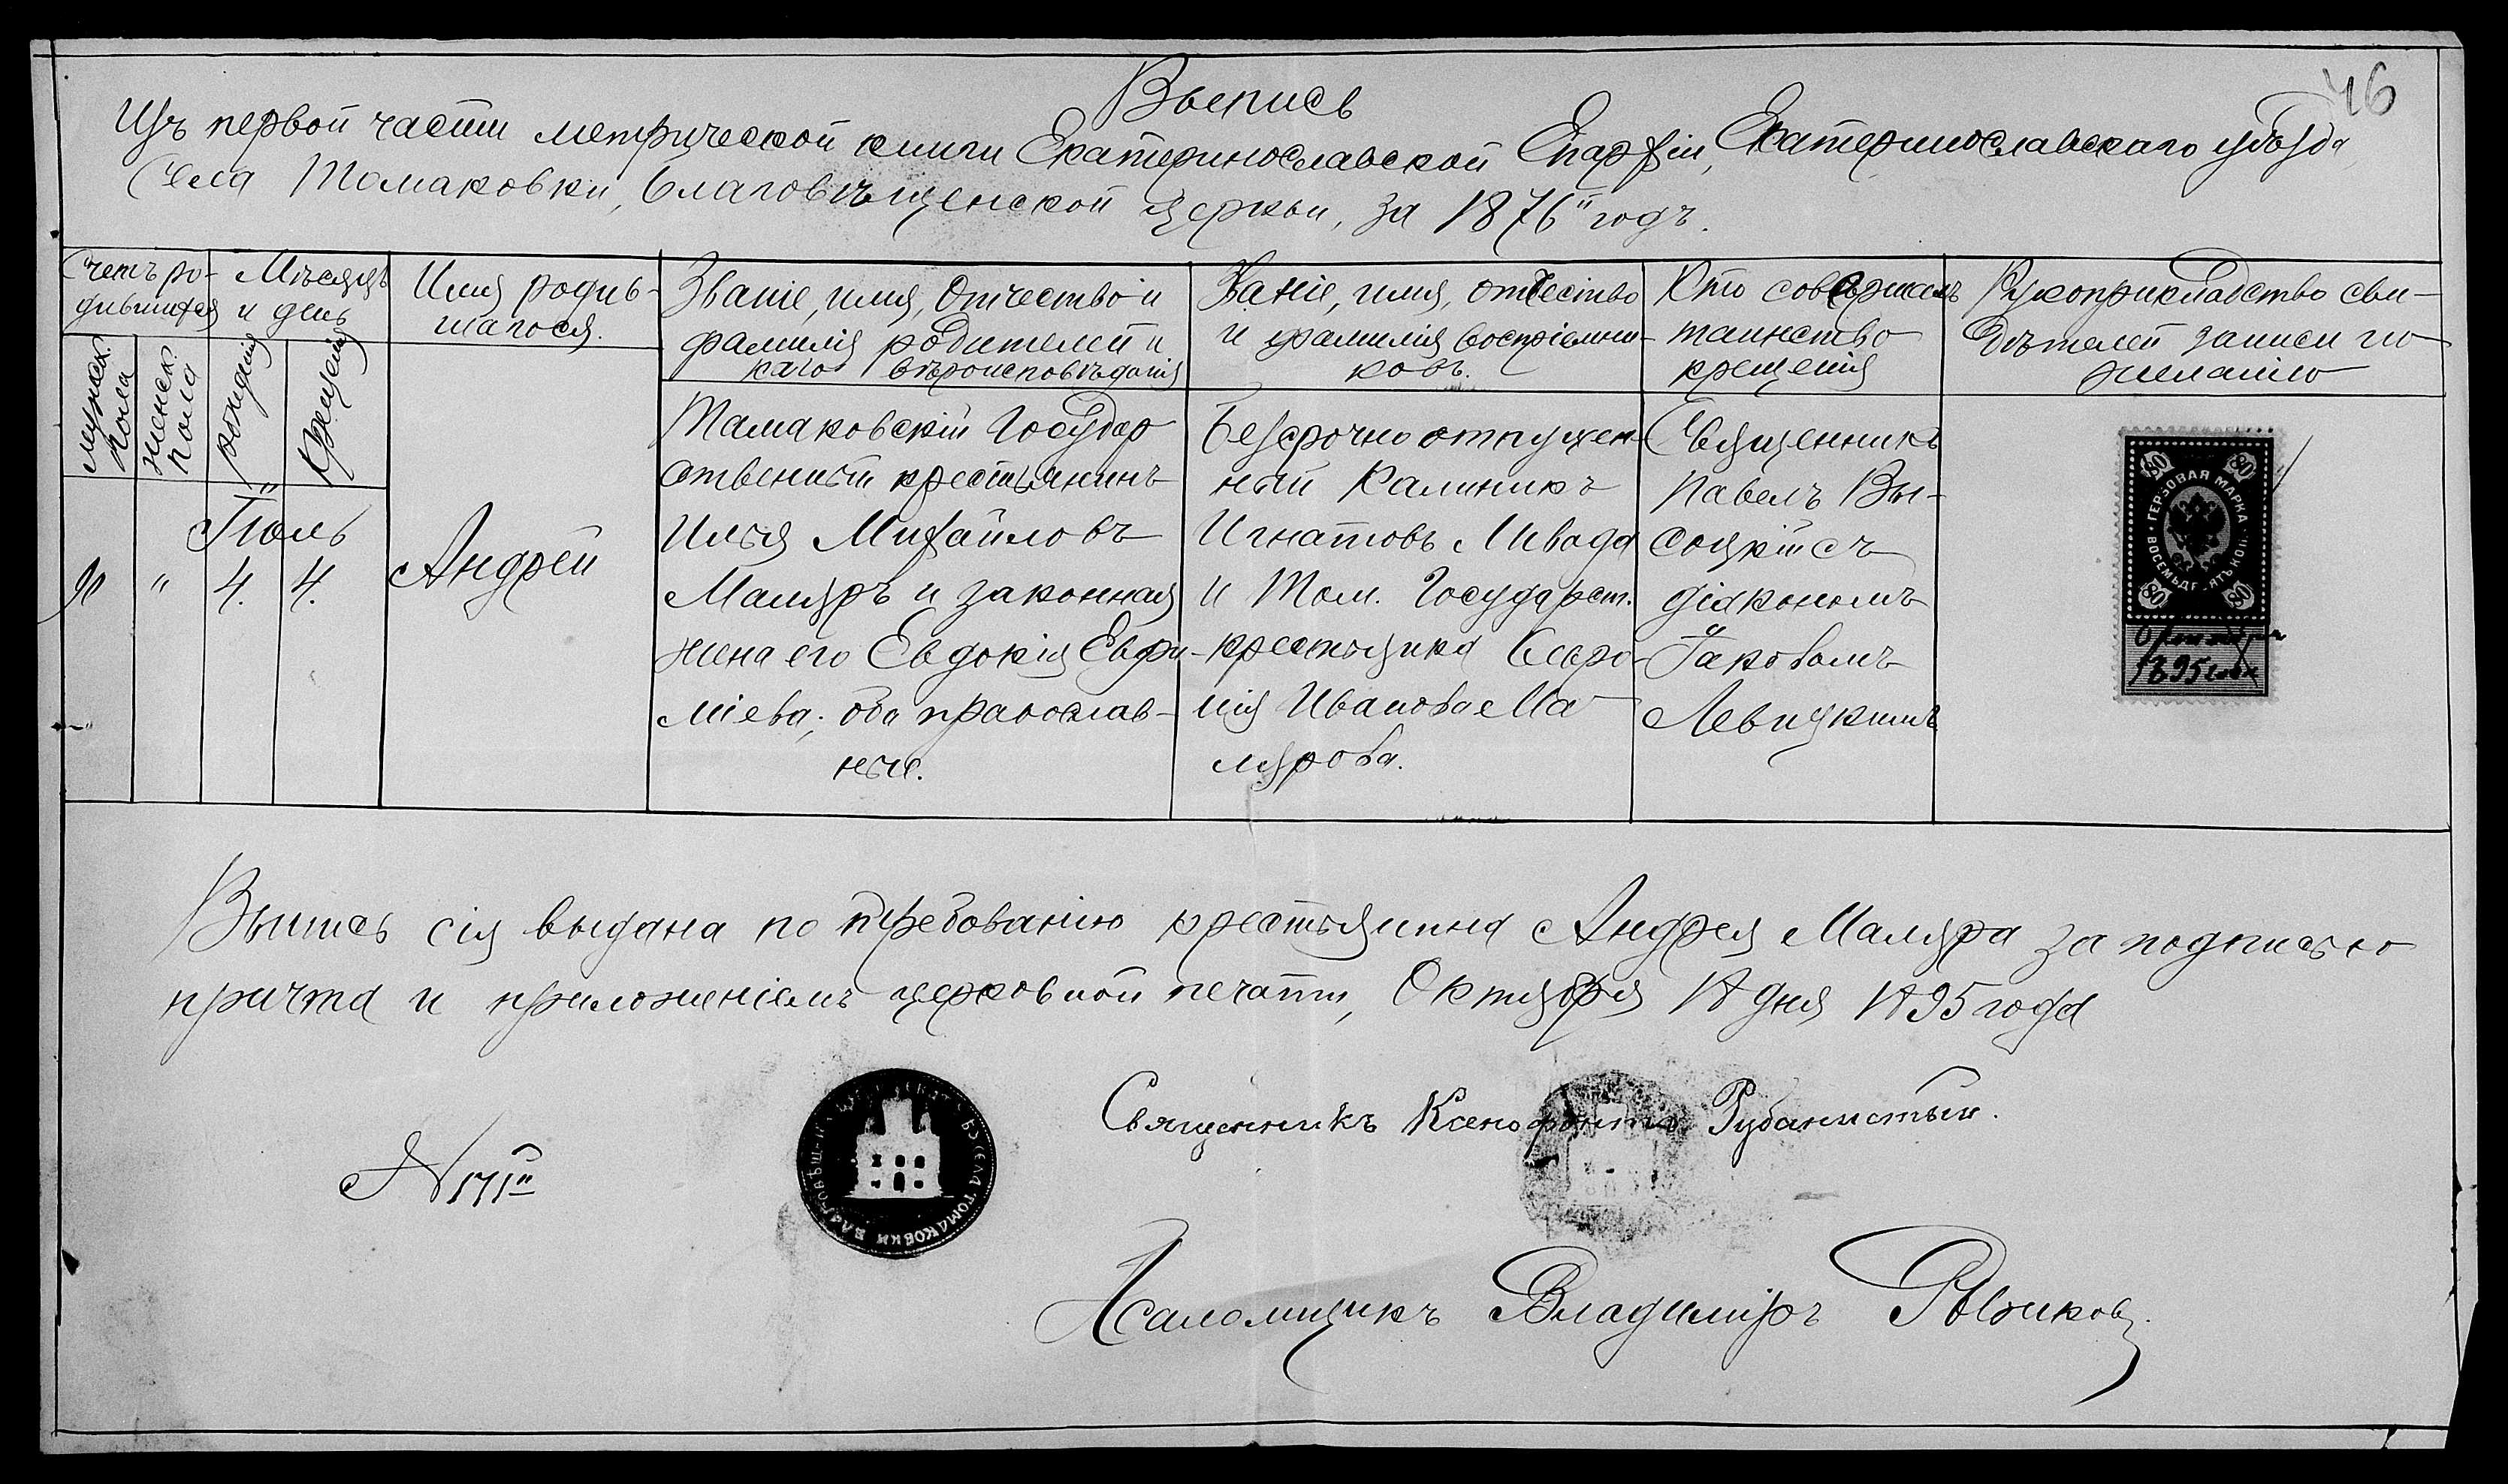 46
Выпись
Изъ первой части метрической книги Екатеринославской Епархіи, Екатеринославскаго уѣзда
Села Томаковки, Благовѣщенской церкви, за 1876й годъ.
Счетъ ро-
дившихся
Мѣсяцъ
и день
Имя родив-
шагося.
Званіе, имя, Отчество и
фамилія родителей и
каго вѣроисповѣданія
Званіе, имя, отчество
и фамилія воспріемни-
ковъ.
Кто совершилъ
таинство
крещенія
Рукоприкладство сви-
дѣтелей записи по
желанію
мужск.
пола
женск.
пола
рожденія
Крещенія
Іюль
"
4.
4.
Андрей
Тамаковскій Государ
ственный крестьянинъ
Илья Михайловъ
Маляръ и законная
жена его Евдокія Евфи-
міева; оба православ-
ные.
Безсрочно отпущен-
ный Калиникъ
Игнатовъ Ливада
и Том. Государст.
крестьянка
Иванова Ма
лярова.
Священникъ
Павелъ Вы-
соцкій съ
діакономъ
Іаковомъ
Левицкимъ
80 80
ГЕРБОВАЯ МАРКА
ВОСЕМЬДЕСЯТЪ КОП.
80 80
1895 года
Выпись сія выдана по требованію крестьянина Андрея Маляра за подписью
причта и приложеніемъ церковной печати, Октября 18 дня 1895 года
Священникъ Ксенофонтъ Рубанистый.
№ 171й
ТОМАКОВКИ
Псаломщикъ Владиміръ Рыжковъ.